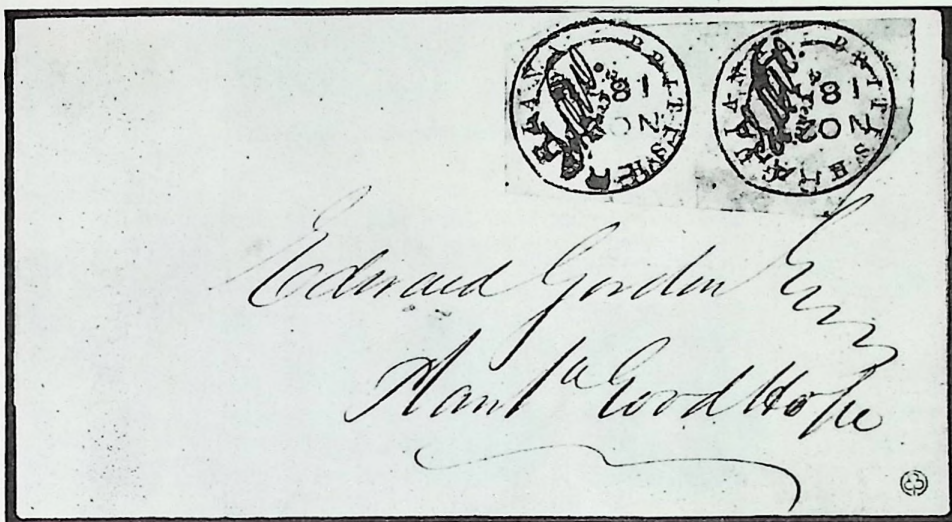 BRITISH GUIANA
BRITISH GUIANA
Edward Gordon Esq
Plant<sup>n</sup> Good Hope